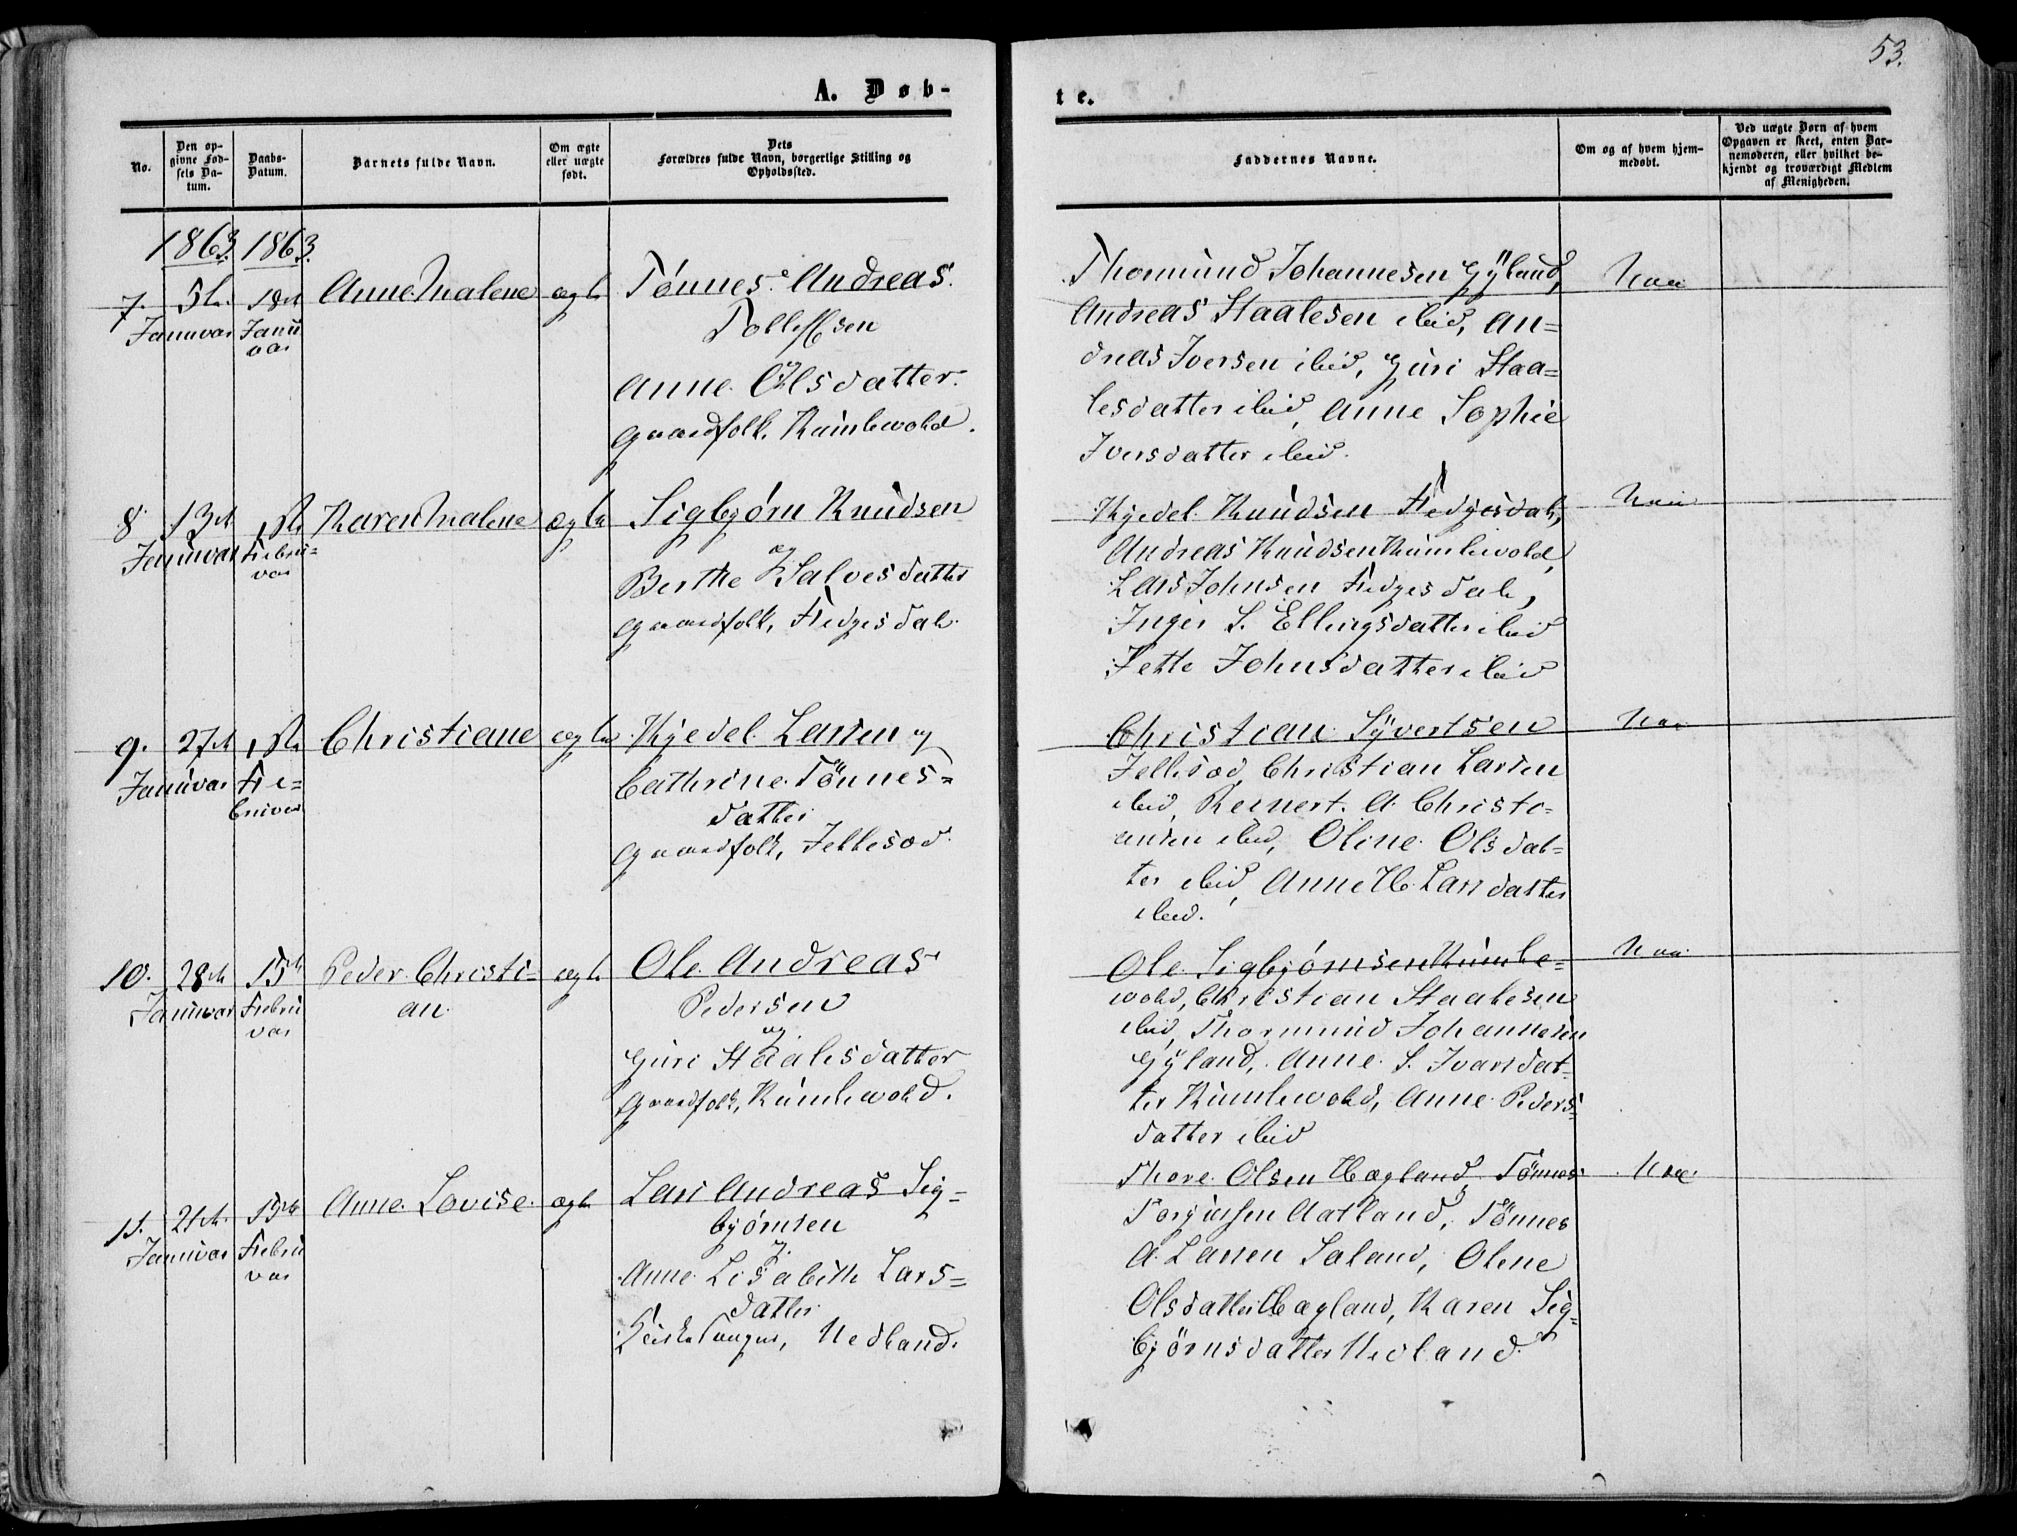 53.
A. Døb-
te.
No.
Den op-
givne Fød-
sels Da-
tum.
Daabs-
Datum.
Barnets fulde Navn.
Om ægte
eller uægte
født.
Dets
Forældres fulde Navn, borgerlige Stilling og
Opholdssted.
Faddernes Navne.
Om og af hvem hjem-
medøbt.
Ved uægte Børn af hvem
Opgaven er skeet, enten Bar-
nemoderen, eller hvilket be-
kjendt og troværdigt Medlem
af Menigheden.
1863. 1863.
7. 5te 18de Anne Malene ægte Tønnes Andreas
Januvar Janu
var
Tollefsen
og
Anne Olsdatter
Gaardfolk, Rumlewold.
Thormund Johannesen Gyland,
Andreas Staalesen ibid, An=
dreas Iversen ibid, Guri Staa=
lesdatter ibid, Anne Sophie
Iversdatter ibid.
Naa
8 13de 1ste Karen Malene ægte Sigbjørn Knudsen
Januvar Febru=
var
og
Berthe Salvesdatter
Gaardfolk, Fedgesdal.
Kjedel Knudsen Fedgesdal,
Andreas Knudsen Rumlewold,
Lars Johnsen Fedgesdal,
Inger S. Ellingsdatter ibid
Jette Johnsdatter ibid
9. 27de 1ste Christiane ægte Kjedel Larsen og
Januvar Fe=
bruvar
Cathrine Tønnes=
datter
Gaardfolk, Jellesod.
Christian Syvertsen
Jellesod, Christian Larsen
ibid, Reinert A. Christi=
ansen ibid, Oline Olsdat=
ter ibid, Anne H. Larsdatter
ibid.
10. 28de 15de Peder Christi= ægte Ole Andreas
Januvar Febru
var
an
Pedersen
og
Guri Staalesdatter
Gaardfolk, Rumlewold.
Ole Sigbjørnsen Rumle=
wold, Christian Staalesen
ibid, Thormund Johannesen
Gyland, Anne S. Ivarsdat=
ter Rumlewold, Anne Peders=
datter ibid
11. 21de 15de Anne Lovise ægte Lars Andreas Sig=
Januvar Febru
var
bjørnsen
og
Anne Lisabeth Lars=
datter
Nedland.
Thore Olsen Hægland, Tønnes
Torjussen Aatland, Tønnes
A. Larsen Saland, Olene
Olsdatter Hægland, Karen Sig=
bjørnsdatter Nedland.